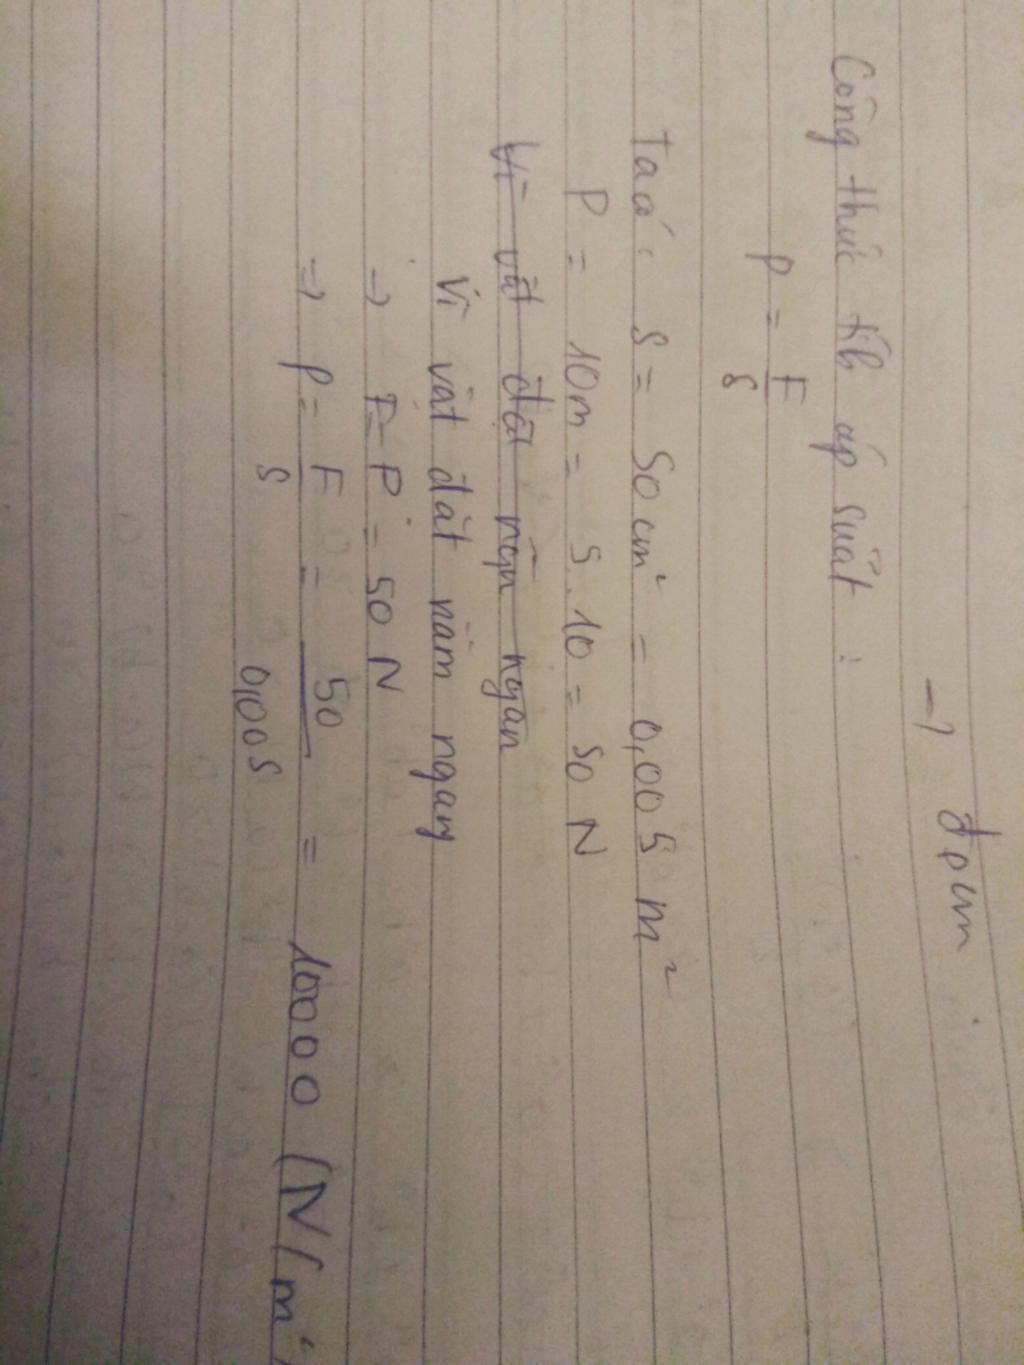 →
Công thức tính áp suất :
p = F/S
Ta có : S = 50 cm² = 0,005 m²
P = 10m = 5.10 = 50 N
Vì vật đặt nằm ngan
Vì vật đặt nằm ngang
→ F = P = 50 N
⇒ p = F/S = 50/0,005 = 10000 (N/m²)